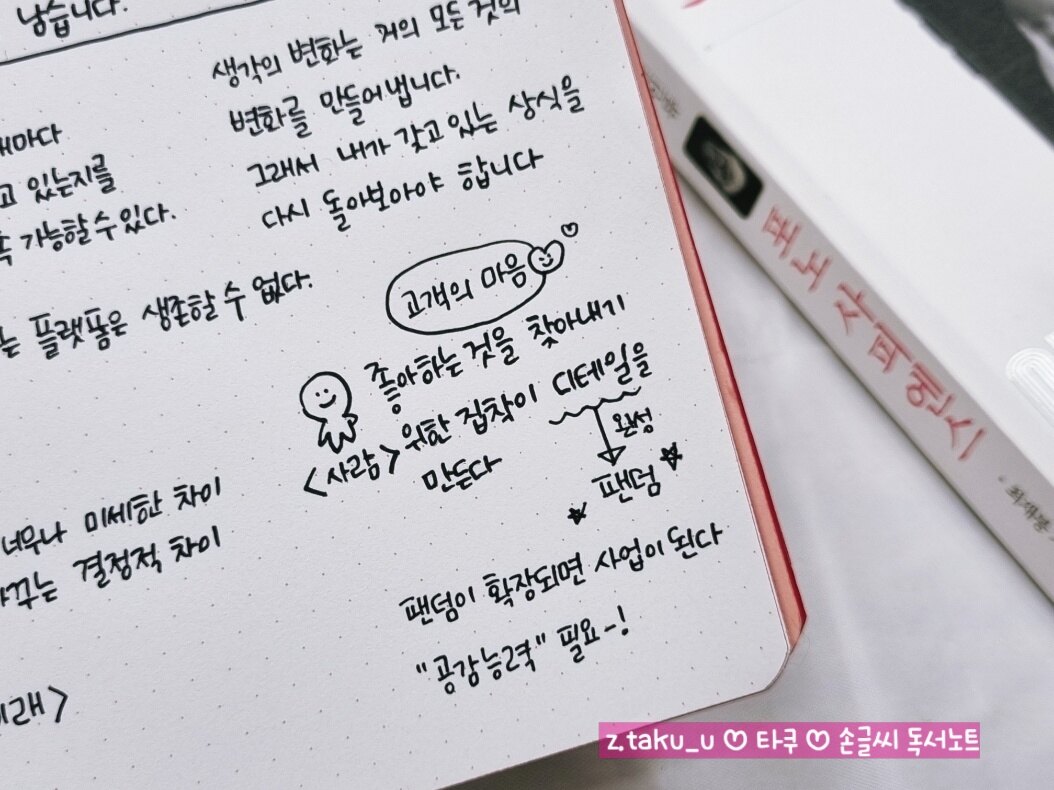 남습니다.
생각의 변화는 거의 모든 것의
변화를 만들어냅니다.
그래서 내가 갖고 있는 상식을
다시 돌아보아야 합니다
고 있는지를
가능할 수 있다.
는 플랫폼은 생존할 수 없다.
고객의 마음
좋아하는 것을 찾아내기
<사람> 위한 집착이 디테일을
만든다
완성
팬덤
너무나 미세한 차이
꾸는 결정적 차이
팬덤이 확장되면 사업이 된다
"공감능력" 필요-!
포노 사피엔스
z.taku_u ♡ 타쿠 ♡ 손글씨 독서노트